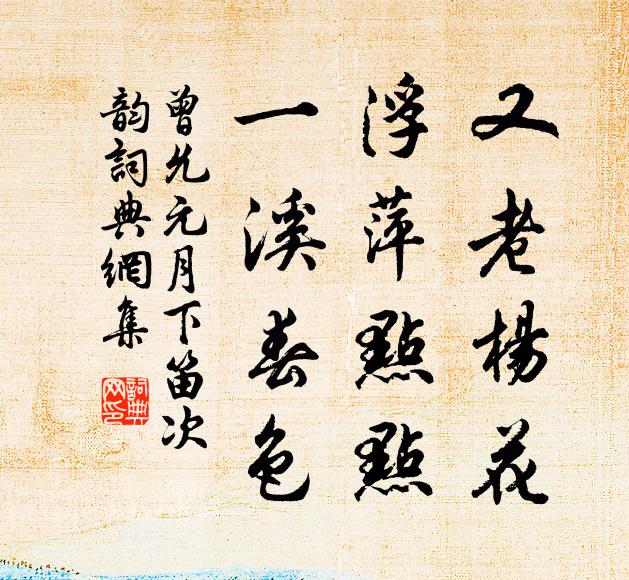 又老楊花
浮萍點點
一溪春色
曾允元月下笛次
韵詞典網集
詞典
網印